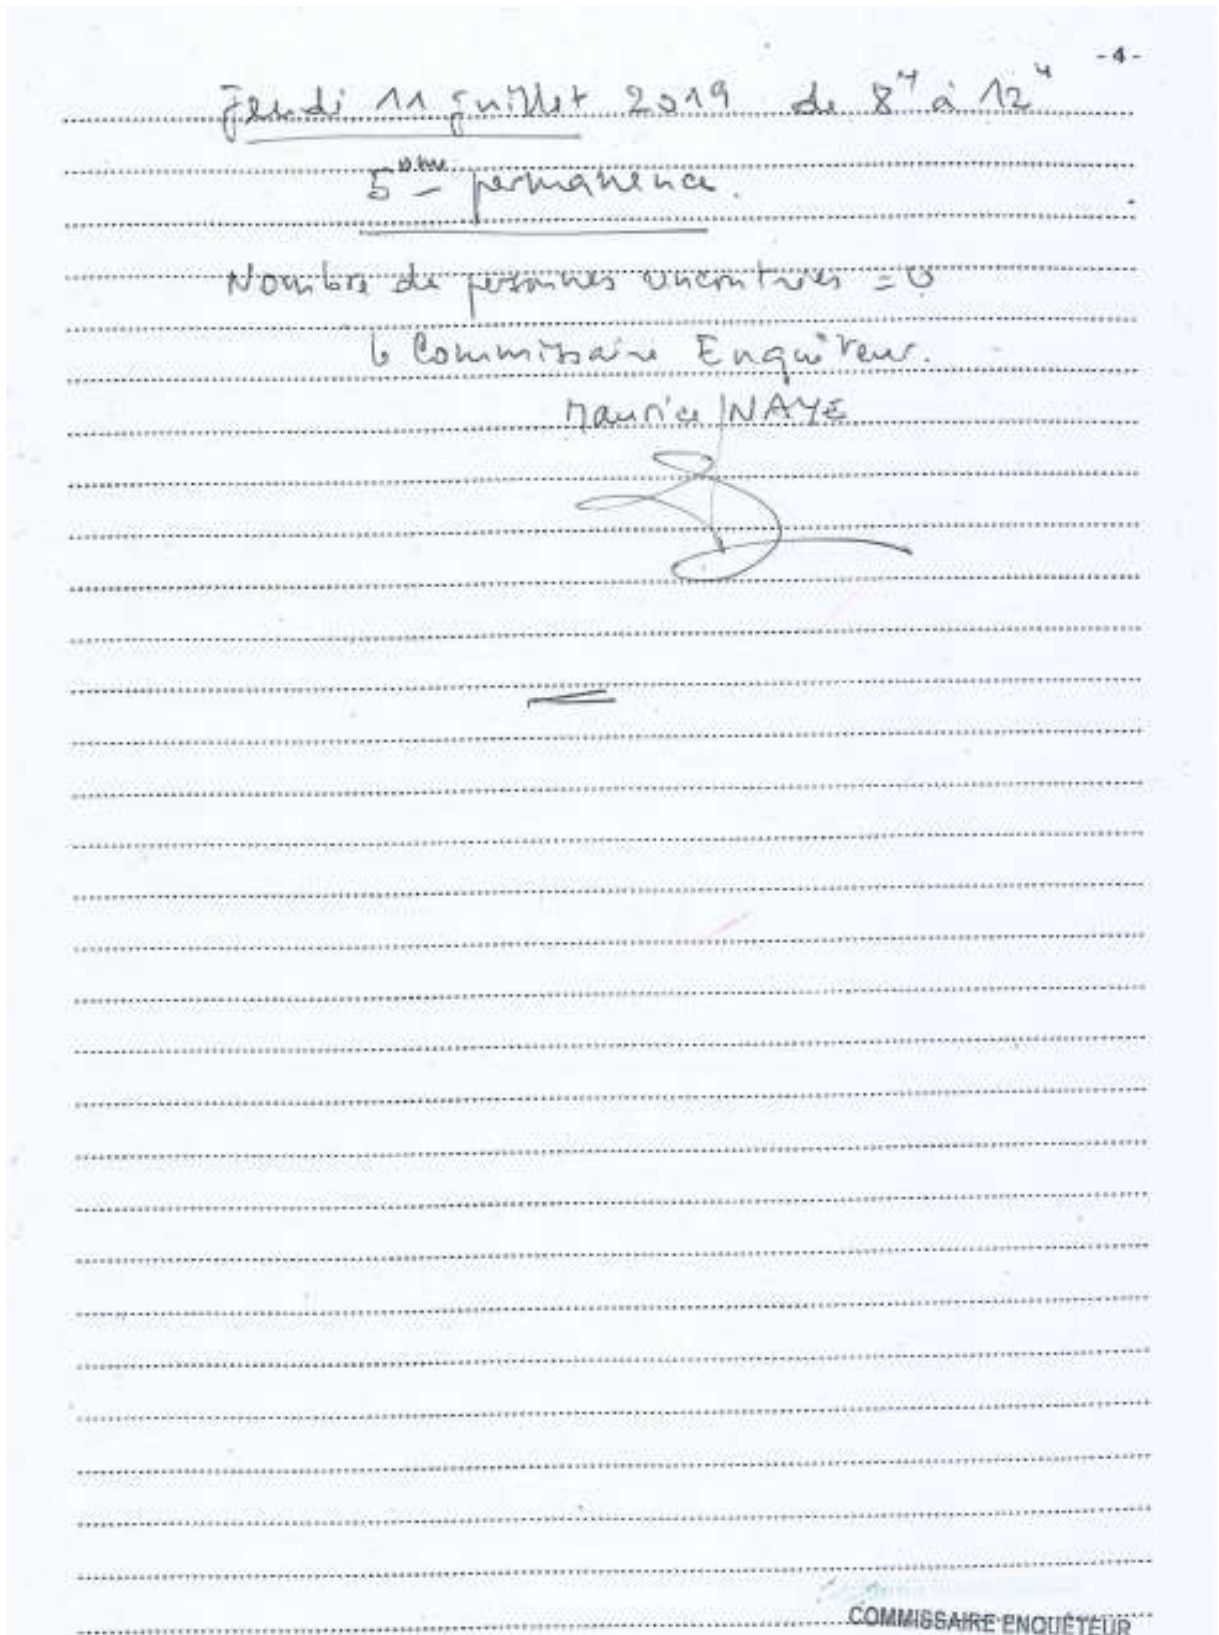 - 4 -
Jeudi 11 juillet 2019 de 8H à 12H
5ème permanence.
Nombre de personnes rencontrées = 0
le Commissaire Enquêteur.
Maurice NAYE
COMMISSAIRE ENQUÊTEUR